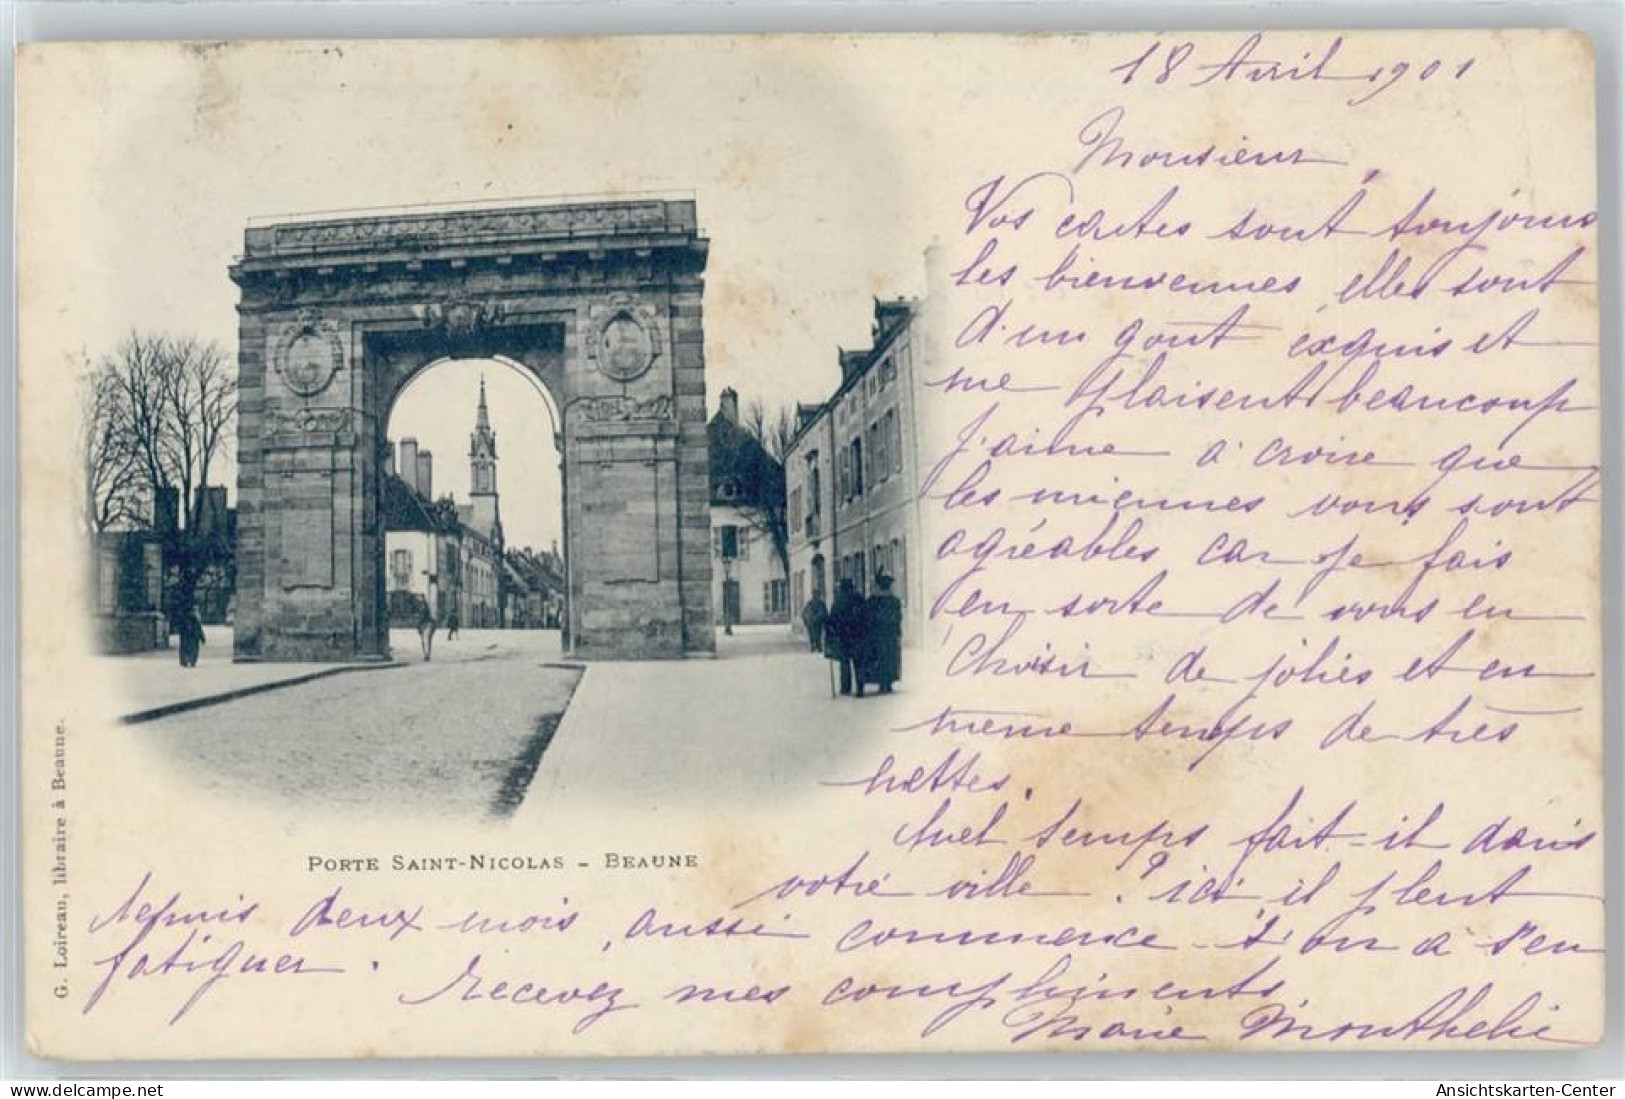 18 Avril 1901
Monsieur,
Vos cartes sont toujours
les bienvenues, elles sont
d'un goût exquis et
me plaisent beaucoup
j'aime à croire que
les miennes vous sont
agréables car je fais
en sorte de vous en
choisir de jolies et en
même temps de très
nettes.
Quel temps fait-il dans
votre ville ? ici, il pleut
depuis deux mois, aussi commence-t'on à s'en
fatiguer.
Recevez mes compliments
Marie Monthelie
PORTE SAINT-NICOLAS - BEAUNE
G. Loireau, libraire à Beaune.
delcampe.net
Ansichtskarten-Center